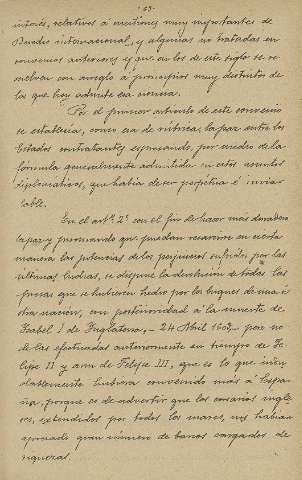 -63-
interés, relativos á cuestiones muy importantes de
Derecho internacional, y algunas no tratadas en
convenios anteriores y que en los de este siglo se re-
suelven con arreglo á principios muy distintos de
los que hoy admite esa ciencia.
Por el primer artículo de este convenio
se establecía, como era de rúbrica, la paz entre los
Estados contratantes expresando, por medio de la
fórmula generalmente admitida en estos asuntos
diplomáticos, que había de ser perpétua é invio-
lable.
En el artº 2º con el fin de hacer más duradera
la paz y procurando que puedan resarcirse en cierta
manera las potencias de los perjuicios sufridos por las
últimas luchas, se dispone la devolución de todas las
presas que se hubieren hecho por los buques de una ó
otra nacion, con posterioridad á la muerte de
Isabel I de Inglaterra, - 24 Abril 1603 - pero no
de las efectuadas anteriormente en tiempo de Fe-
lipe II y aun de Felipe III, que es lo que indu-
dablemente hubiera convenido más á Espa-
ña, porque es de advertir que los corsarios ingle-
ses, extendidos por todos los mares, nos habian
apresado gran número de barcos cargados de
riquezas.